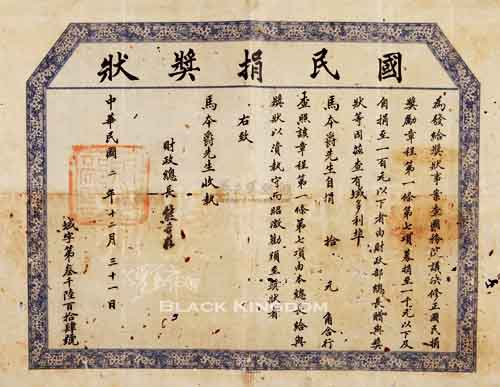 國民捐獎狀
為發給獎狀事案查國務院議決修正國民捐
獎勵章程第一條第七項募捐至一千元以下及
自捐至一百元以下者由財政部總長贈與獎
狀等因茲查有域多利埠
馬今爵先生自捐 拾 元 角合行
查照該章程第一條第七項由本總長給與
獎狀以資執守而昭激勸須至獎狀者
右致
馬今爵先生收執
財政總長
中華民國二年十二月三十一日
域字第叁千陸百拾肆號
BLACK KINGDOM